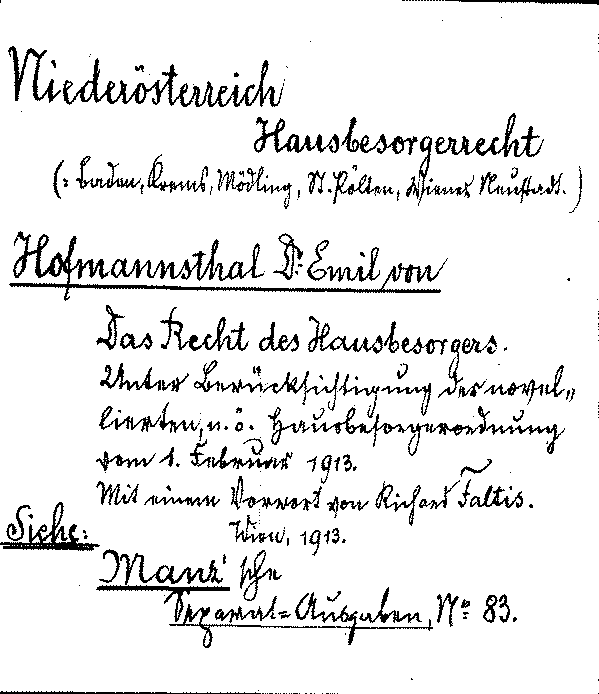 Niederösterreich
Hausbesorgerrecht
(: Baden, Krems, Mödling, St. Pölten, Wiener Neustadt. )
Hofmannsthal Dr. Emil von
Das Recht des Hausbesorgers.
Unter Berücksichtigung der novel-
lierten, n. ö. Hausbesorgerordnung
vom 1. Februar 1913.
Mit einem Vorwort von Richard Faltis.
Wien, 1913.
Siehe:
Manz'sche
Separat=Ausgaben, No 83.